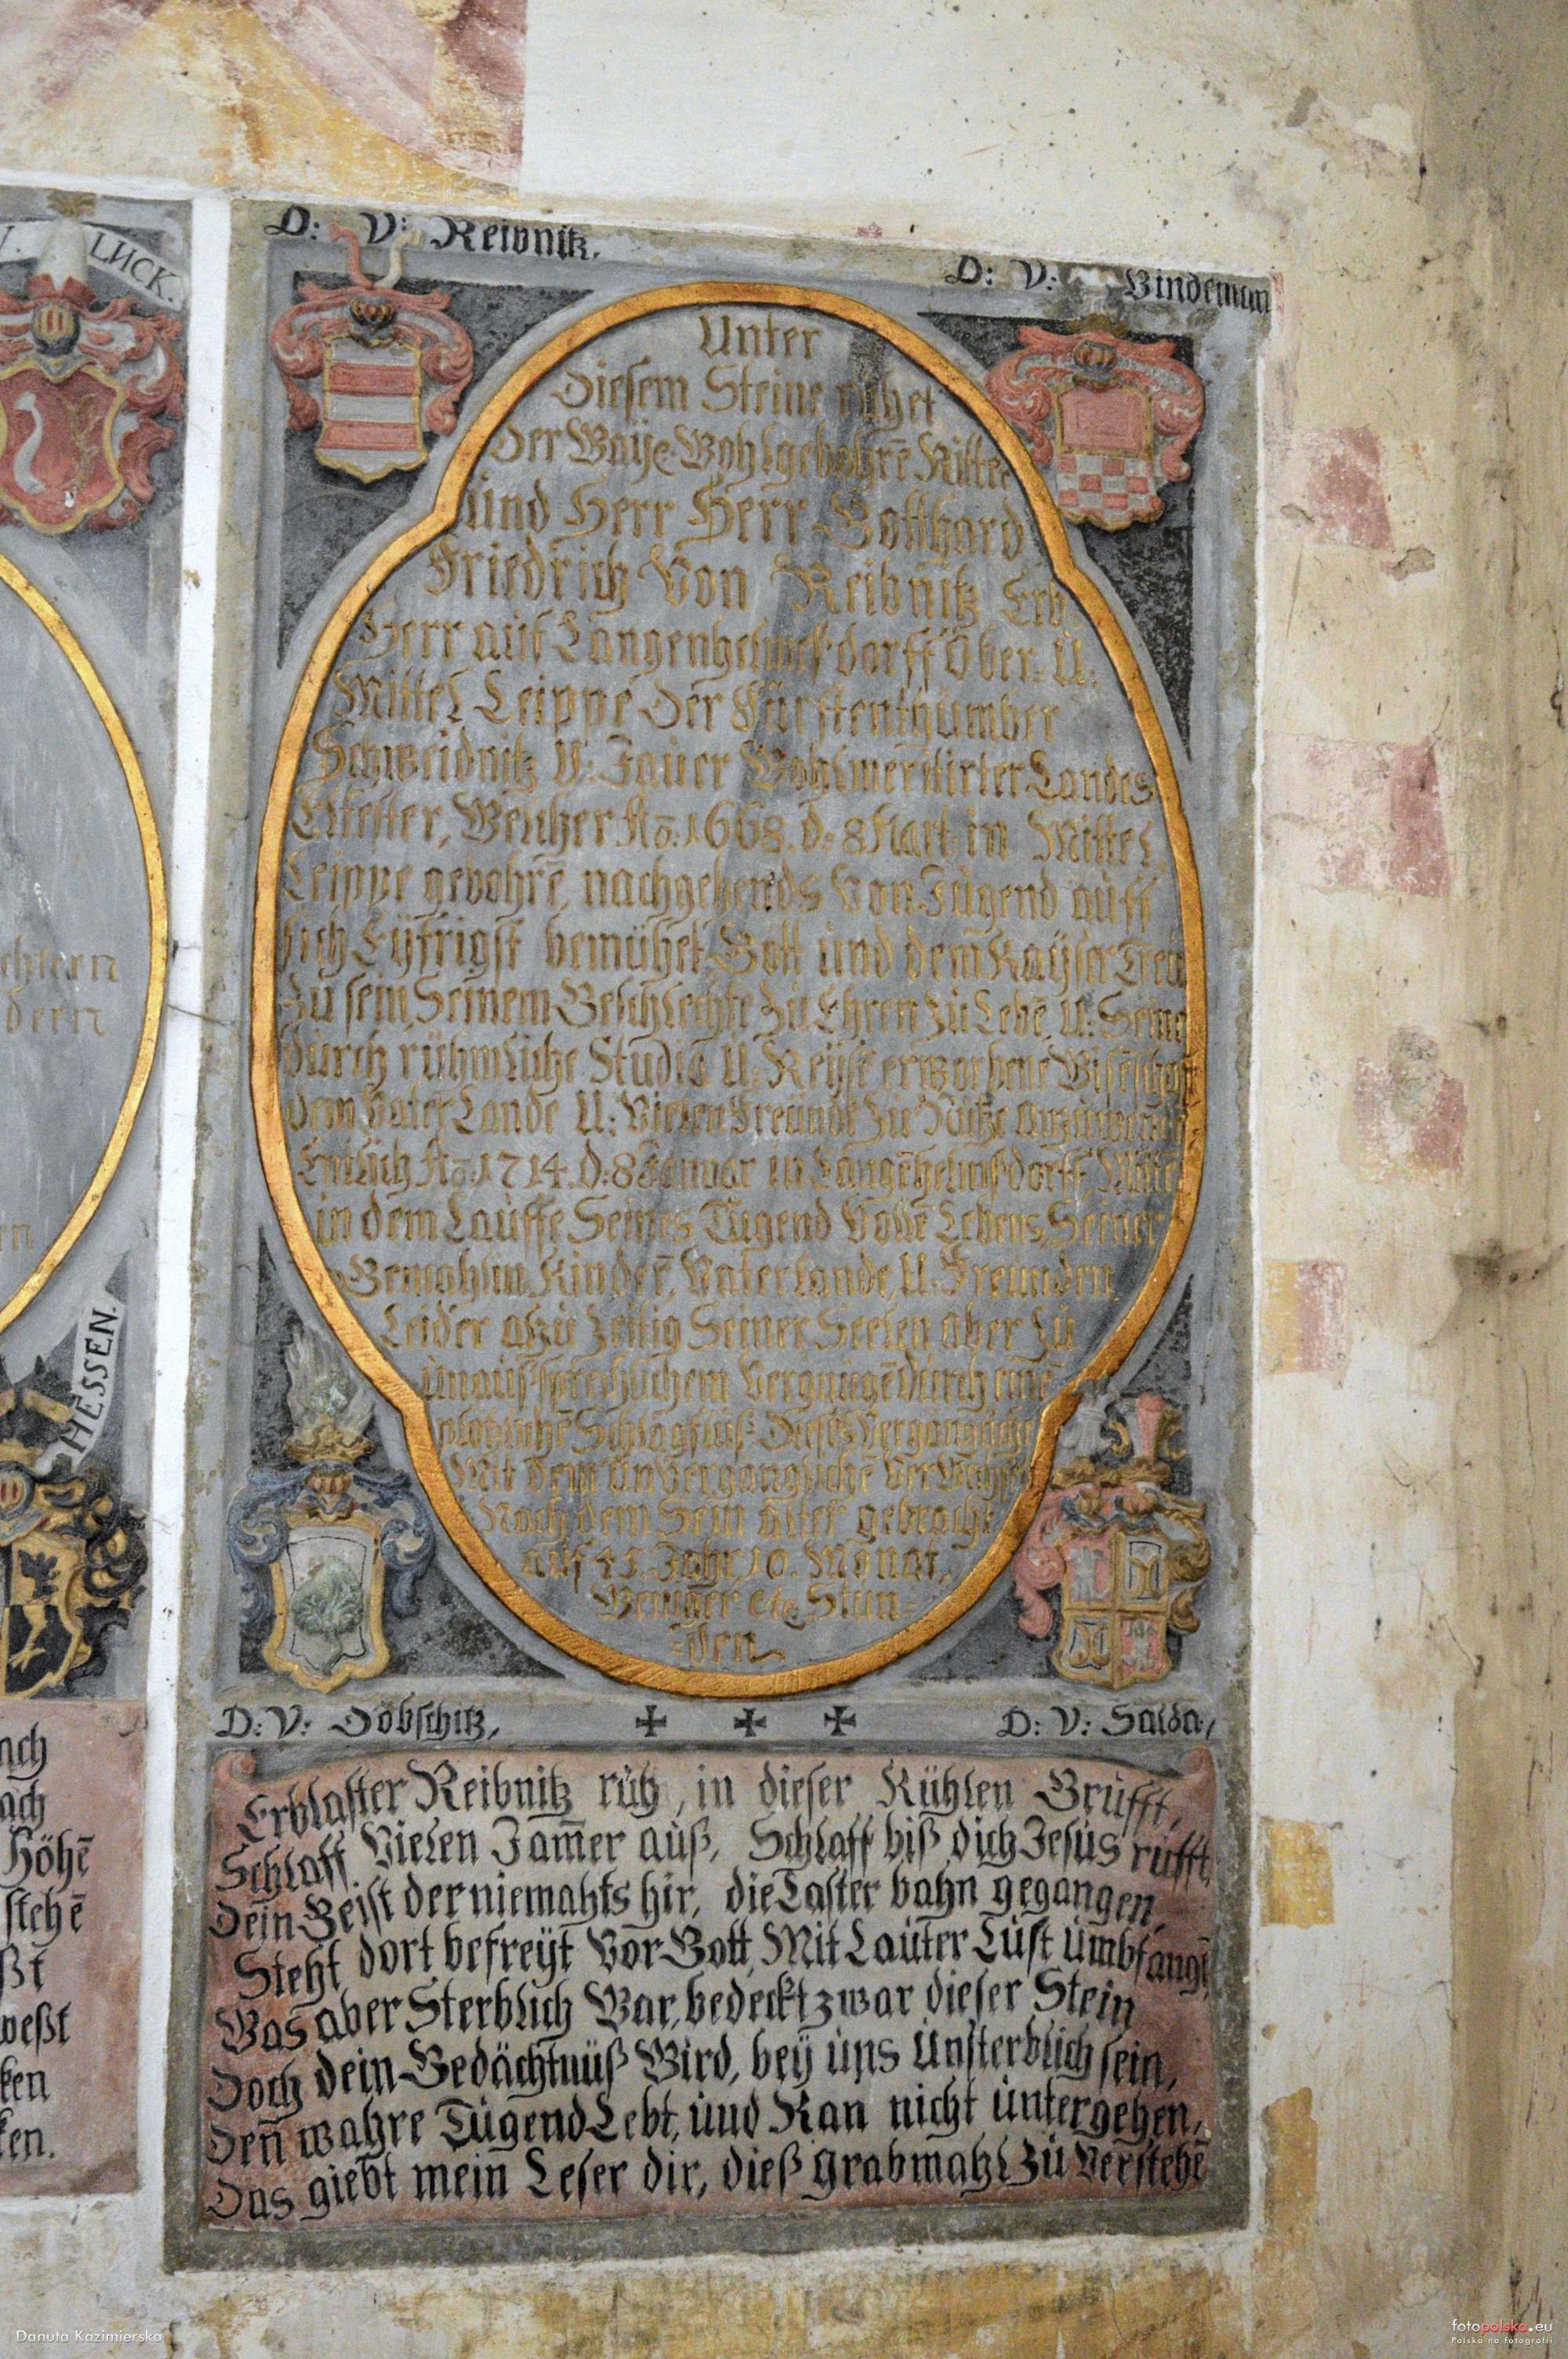 V. LUCK.
D: V: Reibnitz.
D: V: Bindeman
Unter
Diesem Steine ruhet
der Weÿl. Wohlgebohrē Ritter
Und Herr Herr Gotthard
Friedrich Von Reibnitz Erb
Herr auf Langenhelmßdorff Ober. U:
Mittel Leippe Der Fürstenthümber
Schweidnitz U: Jauer Wohlmeritirter Landes
Eltester, Welcher Aō: 1668. d: 8 Mart: in Mittel
Leippe gebohrē, nachgehends Von Jugend auff
sich Eÿfrigst bemühet, Gott und dem Kaÿser Treu
Zu sein, Seinem Geschlechte Zu Ehren Zu Lebē, U: Seine
durch rühmliche Studia U: Reÿse erworbene Wissēschafft
dem Vater Lande U: Vielen Freünde Zu Nutze anzuwendē
Entlich Aō: 1714. d: 8 Januar in Langēhelmßdorff, Mitte
in dem Lauffe Seines Tugend Vollē Lebens, Seiner
Gemahlin, Kinderē, Vaterlande, U: Freunden
Leider alzu Zeitig Seiner Seelen aber zu
unaus-sprechlichem Vergnügē Durch einē
plötzlichē Schlagfluß Dieses Vergängliche
Mit dem UnVergänglichē Verwechselt
Nach dem Sein alter gebracht
auf 45. Jahr, 10. Monat,
Weniger etc Stun=
=den
chtern
dern
en
HESSEN.
D: V: Döbschitz,
D: V: Salda,
Erblaster Reibnitz ruh, in dieser Kühlen Grufft,
Schlaff Vielen Jam̄er auß, Schlaff biß dich Jesus rufft
Dein Geist der niemahls hir, die Laster bahn gegangen
Steht dort befreÿt Vor Gott, Mit Lauter Lust umbfangē
Was aber Sterblich War, bedeckt zwar dieser Stein
Doch dein Gedächtnüß Wird, beÿ uns Unsterblich sein,
Deñ wahre Tugend Lebt, und Kan nicht untergehen,
Das giebt mein Leser dir, dieß grabmahl Zu Verstehē
ach
ach
Höhē
stehē
ßt
weßt
ken
ken.
Danuta Kazimierska
fotopolska.eu
Polska na fotografii